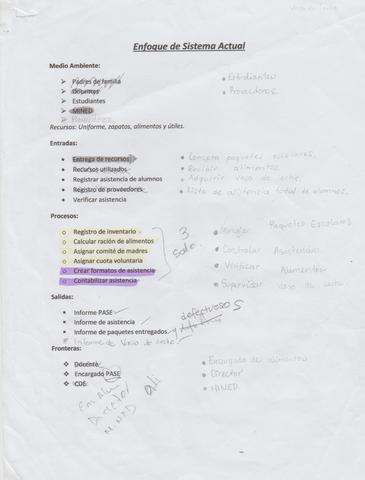 Enfoque de Sistema Actual
Medio Ambiente:
Padres de familia
Docentes
Estudiantes
MINED
• Estudiantes
• Proveedores.
Recursos: Uniforme, zapatos, alimentos y útiles.
Entradas:
• Entrega de recursos
• Recursos utilizados
• Registrar asistencia de alumnos
• Registro de proveedores
• Verificar asistencia
• paquetes escolares.
• Recibir alimentos.
• Adquirir vaso de leche.
• Lista de asistencia total de alumnos.
Procesos:
o Registro de inventario
o Calcular ración de alimentos
o Asignar comité de madres
o Asignar cuota voluntaria
o Crear formatos de asistencia
o Contabilizar asistencia
3
Solo
• Manejar Paquetes Escolares
• Controlar Asistencia.
• Verificar Alimentos
• Supervisar vaso de leche
Salidas:
• Informe PASE
• Informe de asistencia
• Informe de paquetes entregados. y
defectuosos
• Informe de Vaso de leche.
Fronteras:
❖ Docente
❖ Encargado PASE
❖ CDE
Director
MINED
• Encargado de alimentos
• Director
• MINED